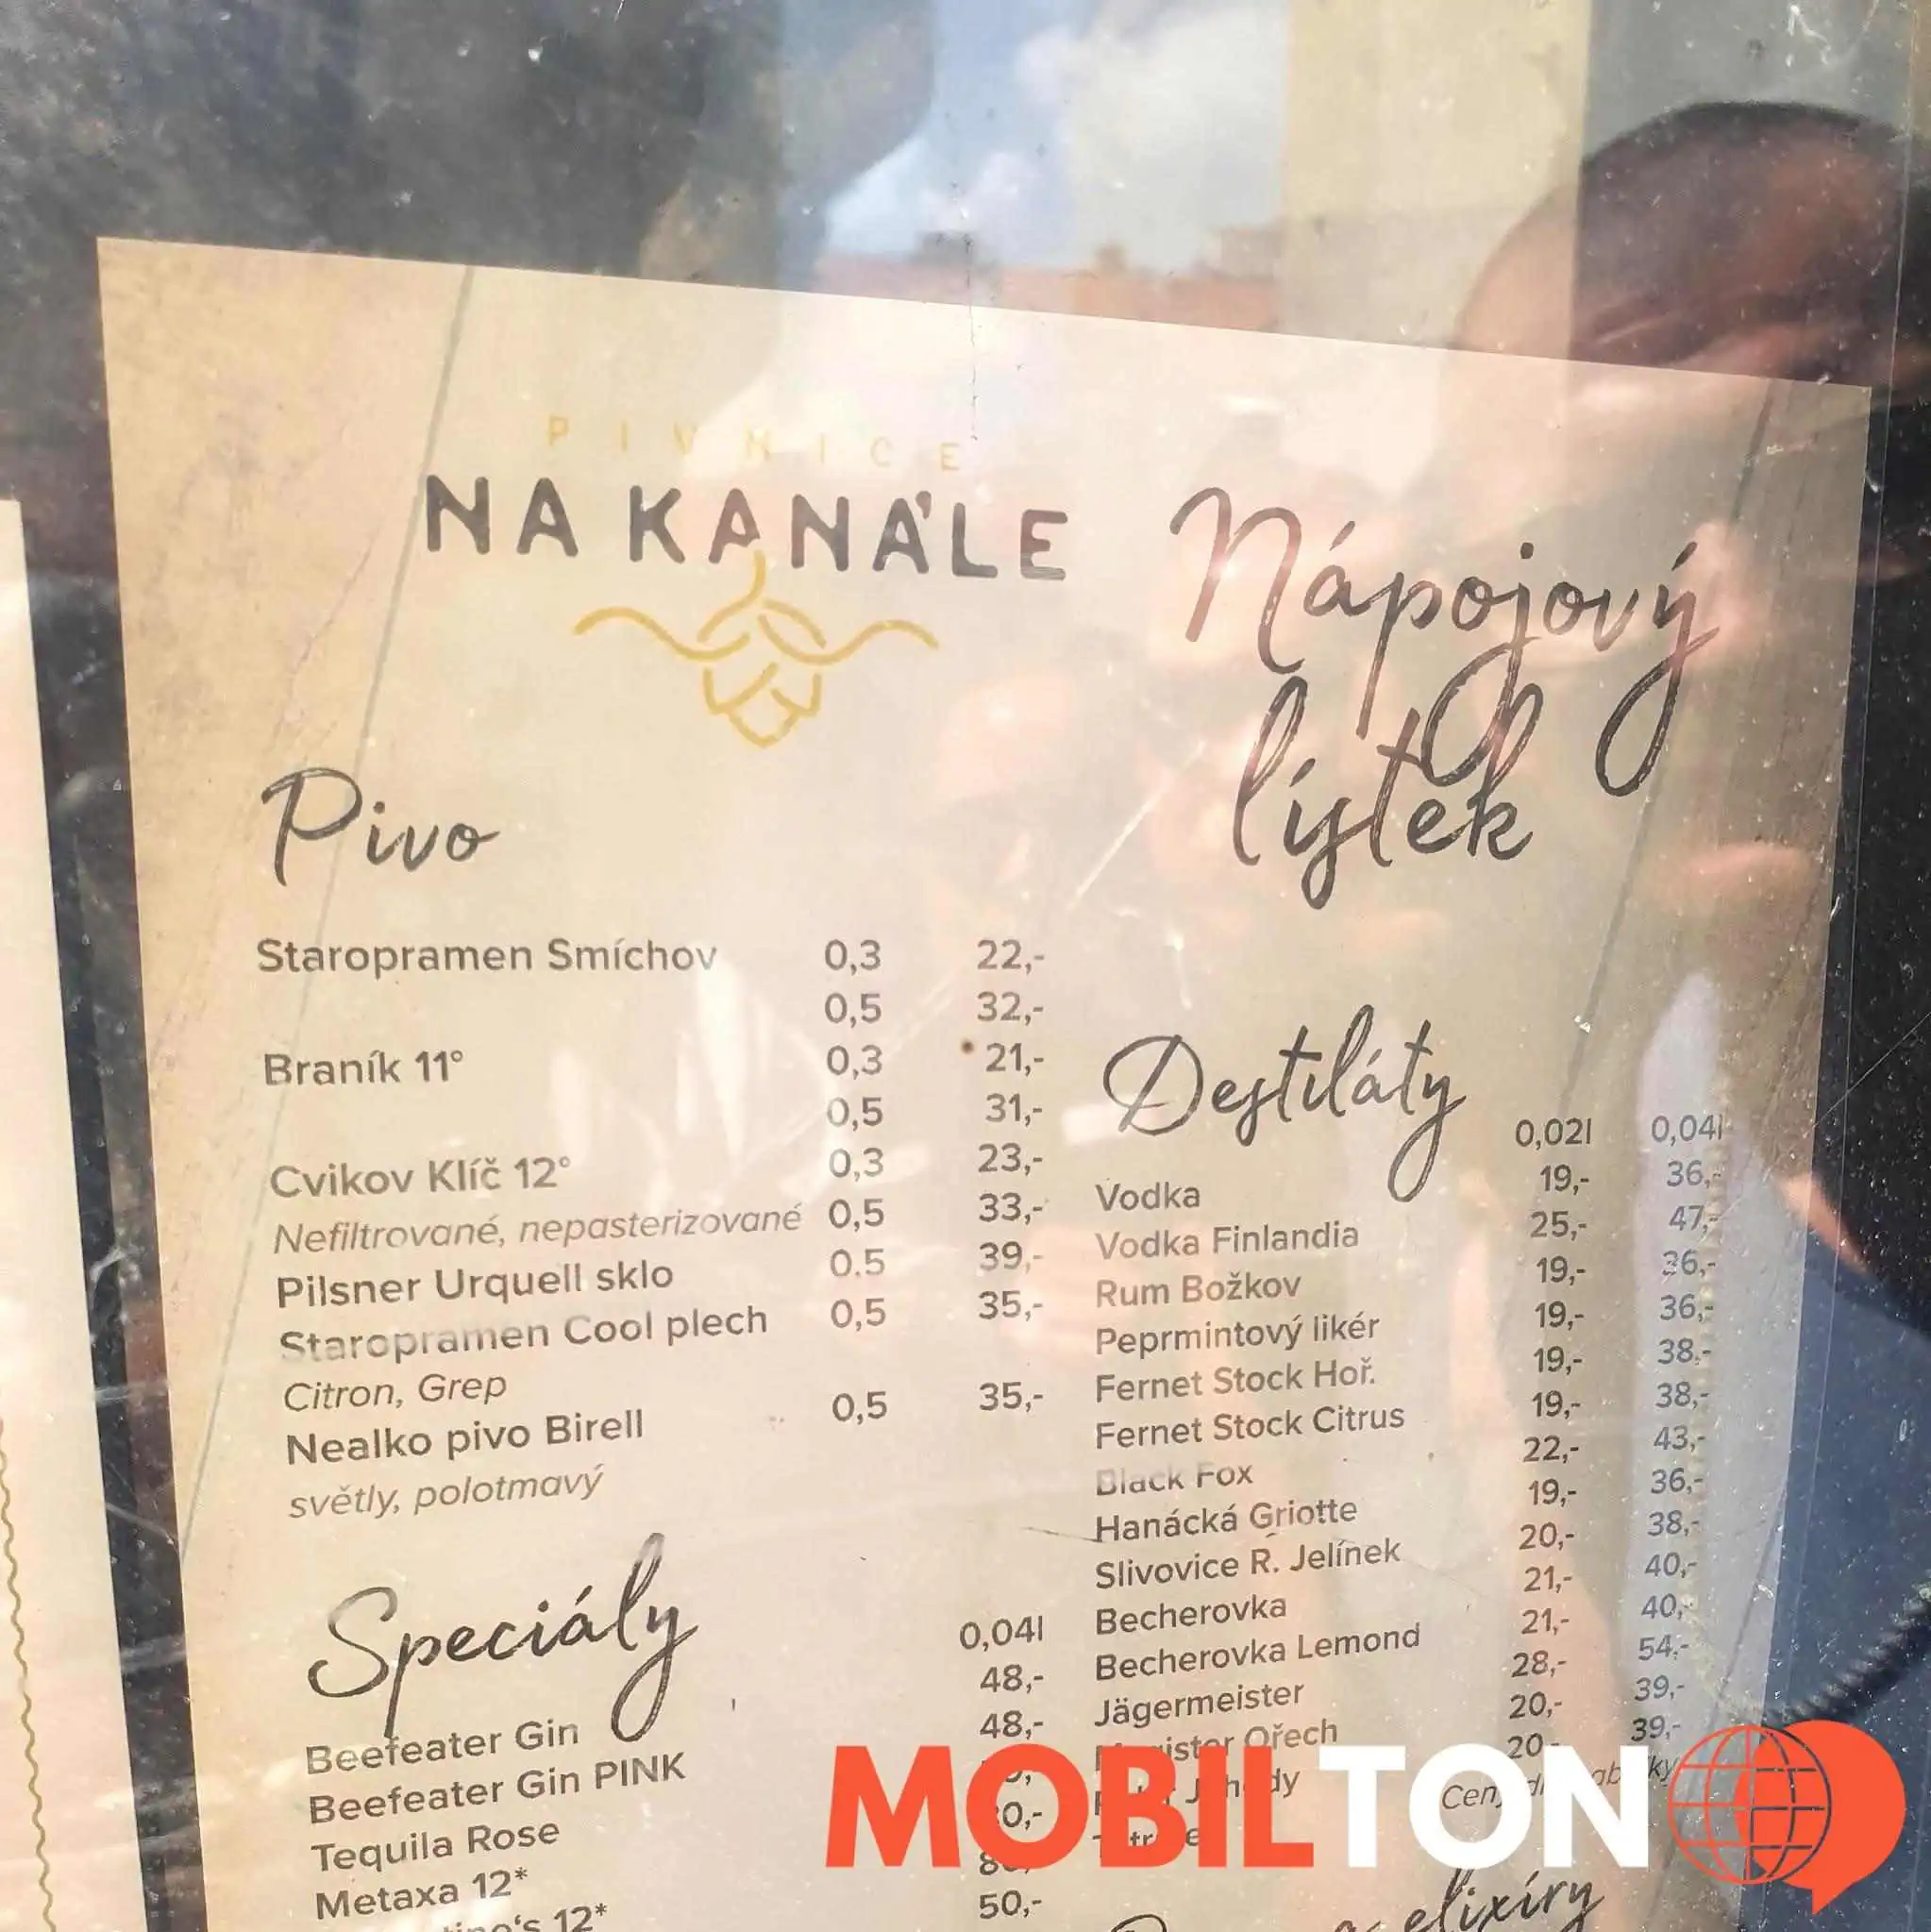 PIVNICE
NA KANÁLE
Nápojový
lístek
Pivo
Staropramen Smíchov 0,3 22,-
0,5 32,-
Braník 11° 0,3 21,-
0,5 31,-
Cvikov Klíč 12° 0,3 23,-
Nefiltrované, nepasterizované 0,5 33,-
Pilsner Urquell sklo 0.5 39,-
Staropramen Cool plech 0,5 35,-
Citron, Grep
Nealko pivo Birell 0,5 35,-
světly, polotmavý
Speciály
0,04l
Beefeater Gin 48,-
Beefeater Gin PINK 48,-
Tequila Rose
Metaxa 12*
12*
50,-
Destiláty
0,02l 0,04l
Vodka 19,- 36,-
Vodka Finlandia 25,- 47,-
Rum Božkov 19,- 36,-
Peprmintový likér 19,- 36,-
Fernet Stock Hoř. 19,- 38,-
Fernet Stock Citrus 19,- 38,-
Black Fox 22,- 43,-
Hanácká Griotte 19,- 36,-
Slivovice R. Jelínek 20,- 38,-
Becherovka 21,- 40,-
Becherovka Lemond 21,- 40,-
Jägermeister 28,- 54,-
Ořech 20,- 39,-
20,- 39,-
elixíry
MOBILTON